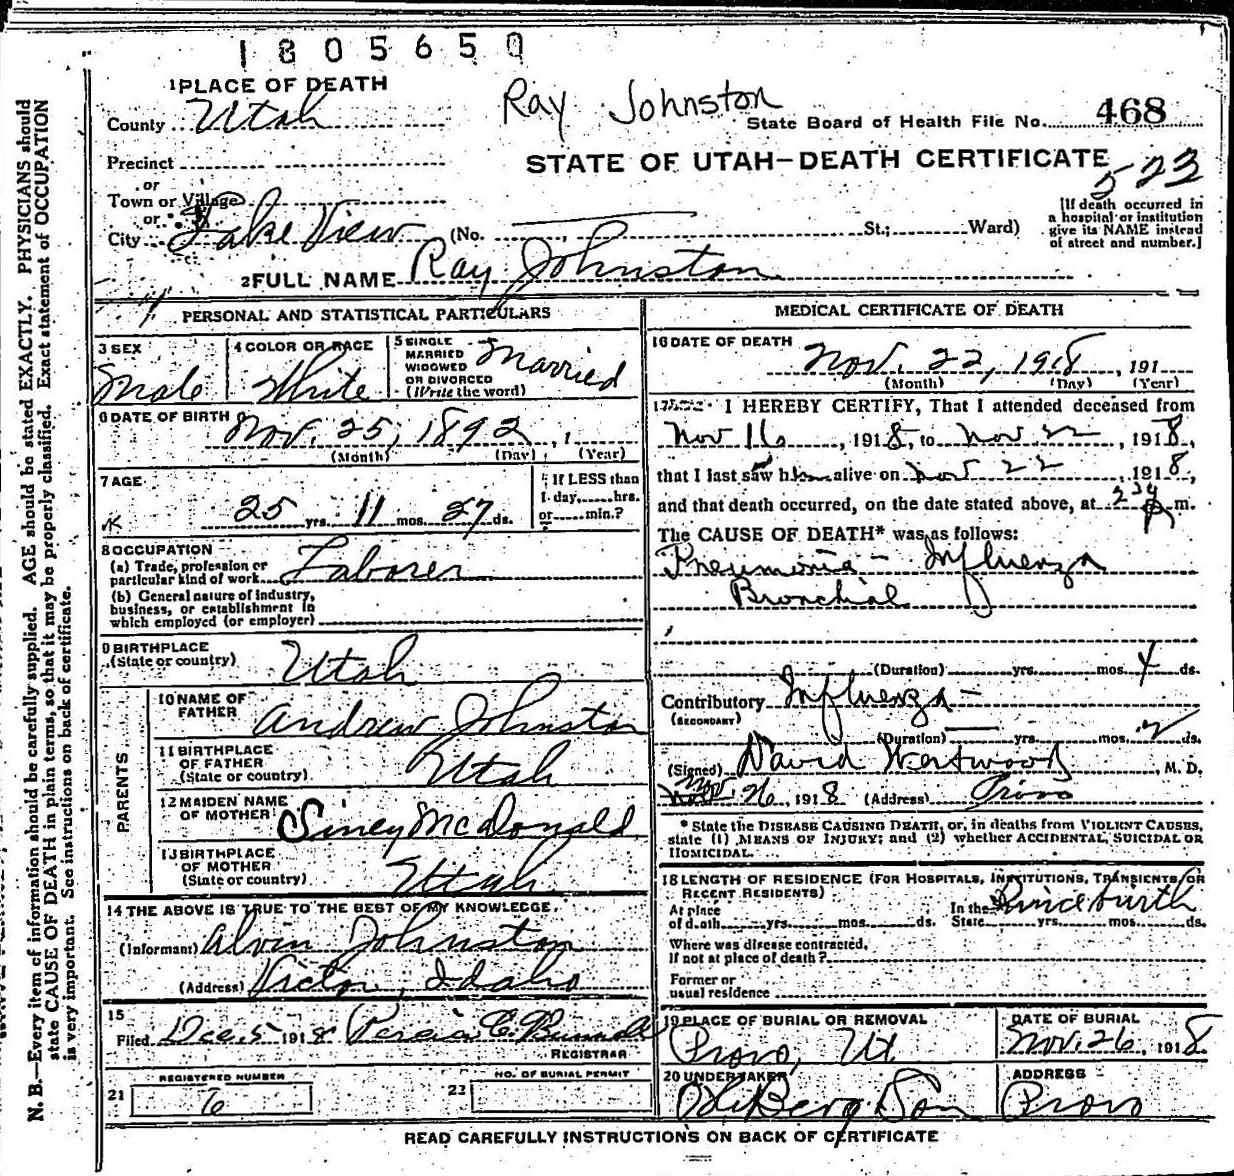 1805650
1 PLACE OF DEATH
Ray Johnston
County Utah
State Board of Health File No. 468
Precinct
STATE OF UTAH—DEATH CERTIFICATE
523
or
Town or Village
or
City Lake View (No. St.; Ward)
[If death occurred in
a hospital or institution
give its NAME instead
of street and number.]
2 FULL NAME Ray Johnston
PERSONAL AND STATISTICAL PARTICULARS
3 SEX
Male
4 COLOR OR RACE
White
5 SINGLE
MARRIED
WIDOWED
OR DIVORCED
(Write the word)
Married
6 DATE OF BIRTH
Nov. 25, 1892, 1
(Month) (Day) (Year)
7 AGE
25 yrs. 11 mos. 27 ds.
If LESS than
1 day, hrs.
or min.?
8 OCCUPATION
(a) Trade, profession or
particular kind of work Laborer
(b) General nature of industry,
business, or establishment in
which employed (or employer)
9 BIRTHPLACE
(State or country) Utah
PARENTS
10 NAME OF
FATHER Andrew Johnston
11 BIRTHPLACE
OF FATHER
(State or country) Utah
12 MAIDEN NAME
OF MOTHER Siney McDonald
13 BIRTHPLACE
OF MOTHER
(State or country) Utah
14 THE ABOVE IS TRUE TO THE BEST OF MY KNOWLEDGE
(Informant) Alvin Johnston
(Address) Victor, Idaho
15
Filed Dec. 5 1918
REGISTRAR
21 REGISTERED NUMBER
6
22 NO. OF BURIAL PERMIT
MEDICAL CERTIFICATE OF DEATH
16 DATE OF DEATH
Nov. 22, 1918, 191
(Month) (Day) (Year)
17 I HEREBY CERTIFY, That I attended deceased from
Nov 16, 1918, to Nov 22, 1918,
that I last saw him alive on Nov 22, 1918,
and that death occurred, on the date stated above, at 230 P m.
The CAUSE OF DEATH* was as follows:
Pneumonia - Influenza
Bronchial
(Duration) yrs. mos. 4 ds.
Contributory Influenza -
(SECONDARY)
(Duration) yrs. mos. ds.
(Signed) David Westwood, M. D.
Nov. 26, 1918 (Address) Provo
* State the DISEASE CAUSING DEATH, or, in deaths from VIOLENT CAUSES,
state (1) MEANS OF INJURY; and (2) whether ACCIDENTAL, SUICIDAL OR
HOMICIDAL.
18 LENGTH OF RESIDENCE (FOR HOSPITALS, INSTITUTIONS, TRANSIENTS, OR
RECENT RESIDENTS)
At place
of death yrs. mos. ds.
In the
State yrs. mos. ds.
Since birth
Where was disease contracted,
if not at place of death?
Former or
usual residence
19 PLACE OF BURIAL OR REMOVAL
Provo, Ut
DATE OF BURIAL
Nov. 26, 1918
20 UNDERTAKER
Berg Son
ADDRESS
Provo
READ CAREFULLY INSTRUCTIONS ON BACK OF CERTIFICATE
N. B.—Every item of information should be carefully supplied. AGE should be stated EXACTLY. PHYSICIANS should
state CAUSE OF DEATH in plain terms, so that it may be properly classified. Exact statement of OCCUPATION
is very important. See instructions on back of certificate.